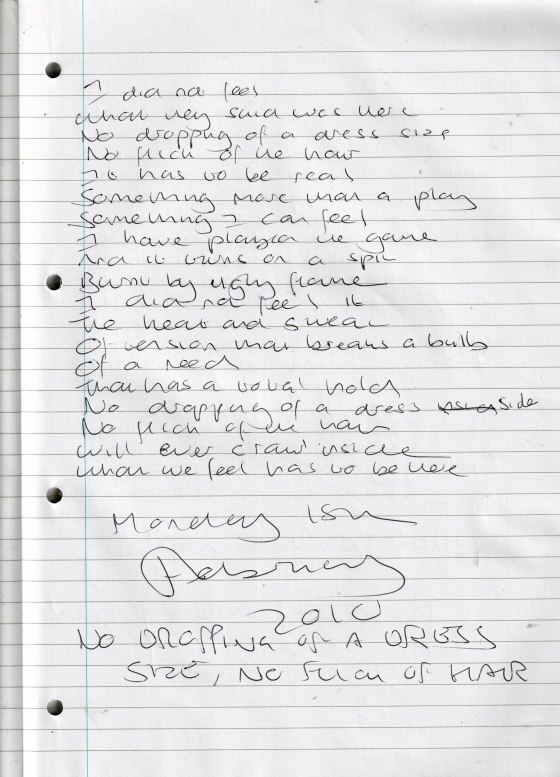 I did not feel
what they said was there
No dropping of a dress size
No flick of the hair
It has to be real
Something more than a play
Something I can feel
I have played the game
And it turns on a spit
Burnt by ugly flame
I did not feel it
The heat and sweat
Of tension that breaks a bulb
Of a need
that has a total hold
No dropping of a dress side
No flick of the hair
will ever crawl inside
what we feel has to be there
Monday 15th
February
2010
NO DROPPING OF A DRESS
SIZE, NO FLICK OF HAIR